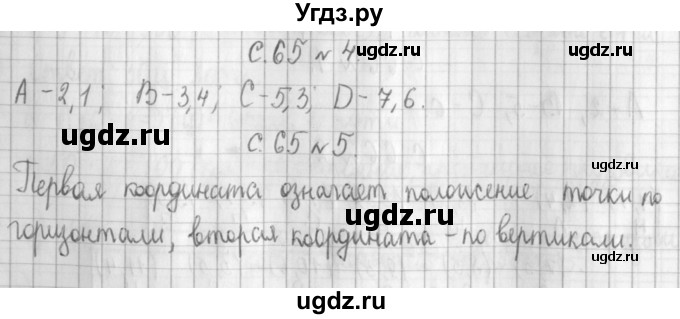 Угдз.ру
с. 65 № 4 ugdz.ru ugdz.ru
A - 2,1; B - 3,4; C - 5,3; D - 7,6.
ugdz.ru с. 65 № 5. ugdz.ru
Первая координата означает положение точки по
ugdz.ru
горизонтали, вторая координата - по вертикали.
ugdz.ru ugdz.ru
ugdz.ru